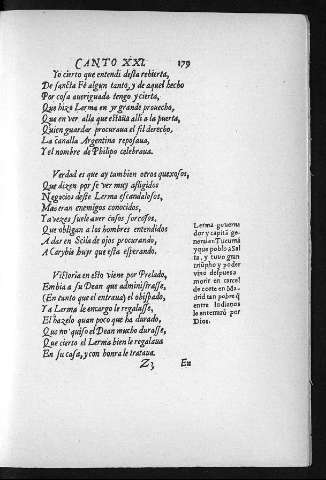 CANTO XXI. 179
Yo cierto que entendi desta rebierta,
De sancta Fé algun tanto, y de aquel hecho
Por cosa aueriguada tengo y cierta,
Que hizo Lerma en yr grande prouecho,
Que en ver alla que estaua alli a la puerta,
Quien guardar procuraua el fil derecho,
La canalla Argentina reposaua,
Y el nombre de Philipo celebraua.
Verdad es que ay tambien otros quexosos,
Que dizen por se ver muy afligidos
Negocios deste Lerma escandalosos,
Mas eran enemigos conocidos,
Ya vezes suele auer casos forçosos,
Que obligan a los hombres entendidos
A dar en Scila de ojos procurando,
A Carybis huyr que esta esperando.
Victoria en esto viene por Prelado,
Embia a su Dean que administrasse,
(En tanto que el entraua) el obispado,
Y a Lerma le encargo le regalasse,
El hazelo quan poco que ha durado,
Que no quiso el Dean mucho durasse,
Que cierto el Lerma bien le regalaua
En su casa, y con honra le trataua.
Z3 En
Lerma gouerna
dor y capitã ge-
neral en Tucumã
y que poblo a Sal
ta, y tuuo gran
triũpho y poder
vino despues a
morir en carcel
de corte en Ma-
drid tan pobre q̃
entre Indianos
le enterraro por
Dios.